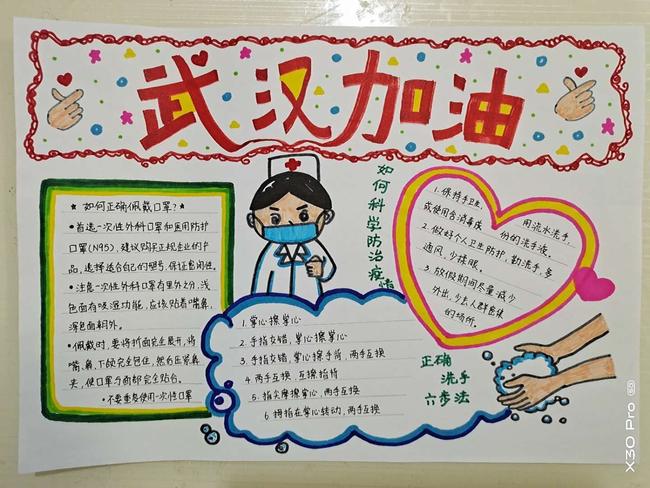 武汉加油
★ 如何正确佩戴口罩? ★
•首选一次性外科口罩和医用防护
口罩(N95),建议购买正规企业的产
品,选择适合自己的型号,保证密闭性。
•注意一次性外科口罩有里外之分,浅
色面有吸湿功能,应该贴着嘴鼻,
深色面朝外。
•佩戴时,要将折面完全展开,将
嘴、鼻、下颌完全包住,然后压紧鼻
夹,使口罩与面部完全贴合。
•不要重复使用一次性口罩
如何科学防治疫情
1.保持手卫生,
用流水洗手,
或使用含消毒成
份的洗手液。
2.做好个人卫生防护,勤洗手,多
通风,少揉眼。
3.放假期间尽量减少
外出,少去人群密集
的场所。
1.掌心擦掌心
2.手指交错,掌心擦掌心
3.手指交错,掌心擦手背,两手互换
4.两手互换,互擦指背
5.指尖摩擦掌心,两手互换
6.拇指在掌心转动,两手互换
正确
洗手
六步法
X30 Pro